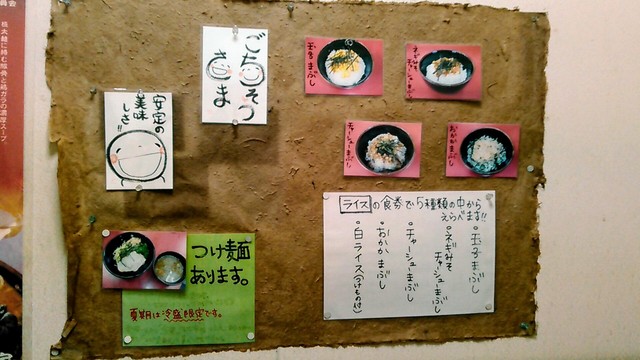 員会
極太麺に絡む豚骨と鶏ガラの濃厚スープ。
ごちそう
さま
安定の
美味
しさ!!
玉子まぶし
ネギみそ
チャーシューまぶし
チャーシューまぶし
おかかまぶし
ライスの食券で5種類の中から
えらべます!!
・玉子まぶし
・ネギみそ
チャーシューまぶし
・チャーシューまぶし
・おかかまぶし
・白ライス(つけもの付)
つけ麺
あります。
夏期は冷盛限定です。